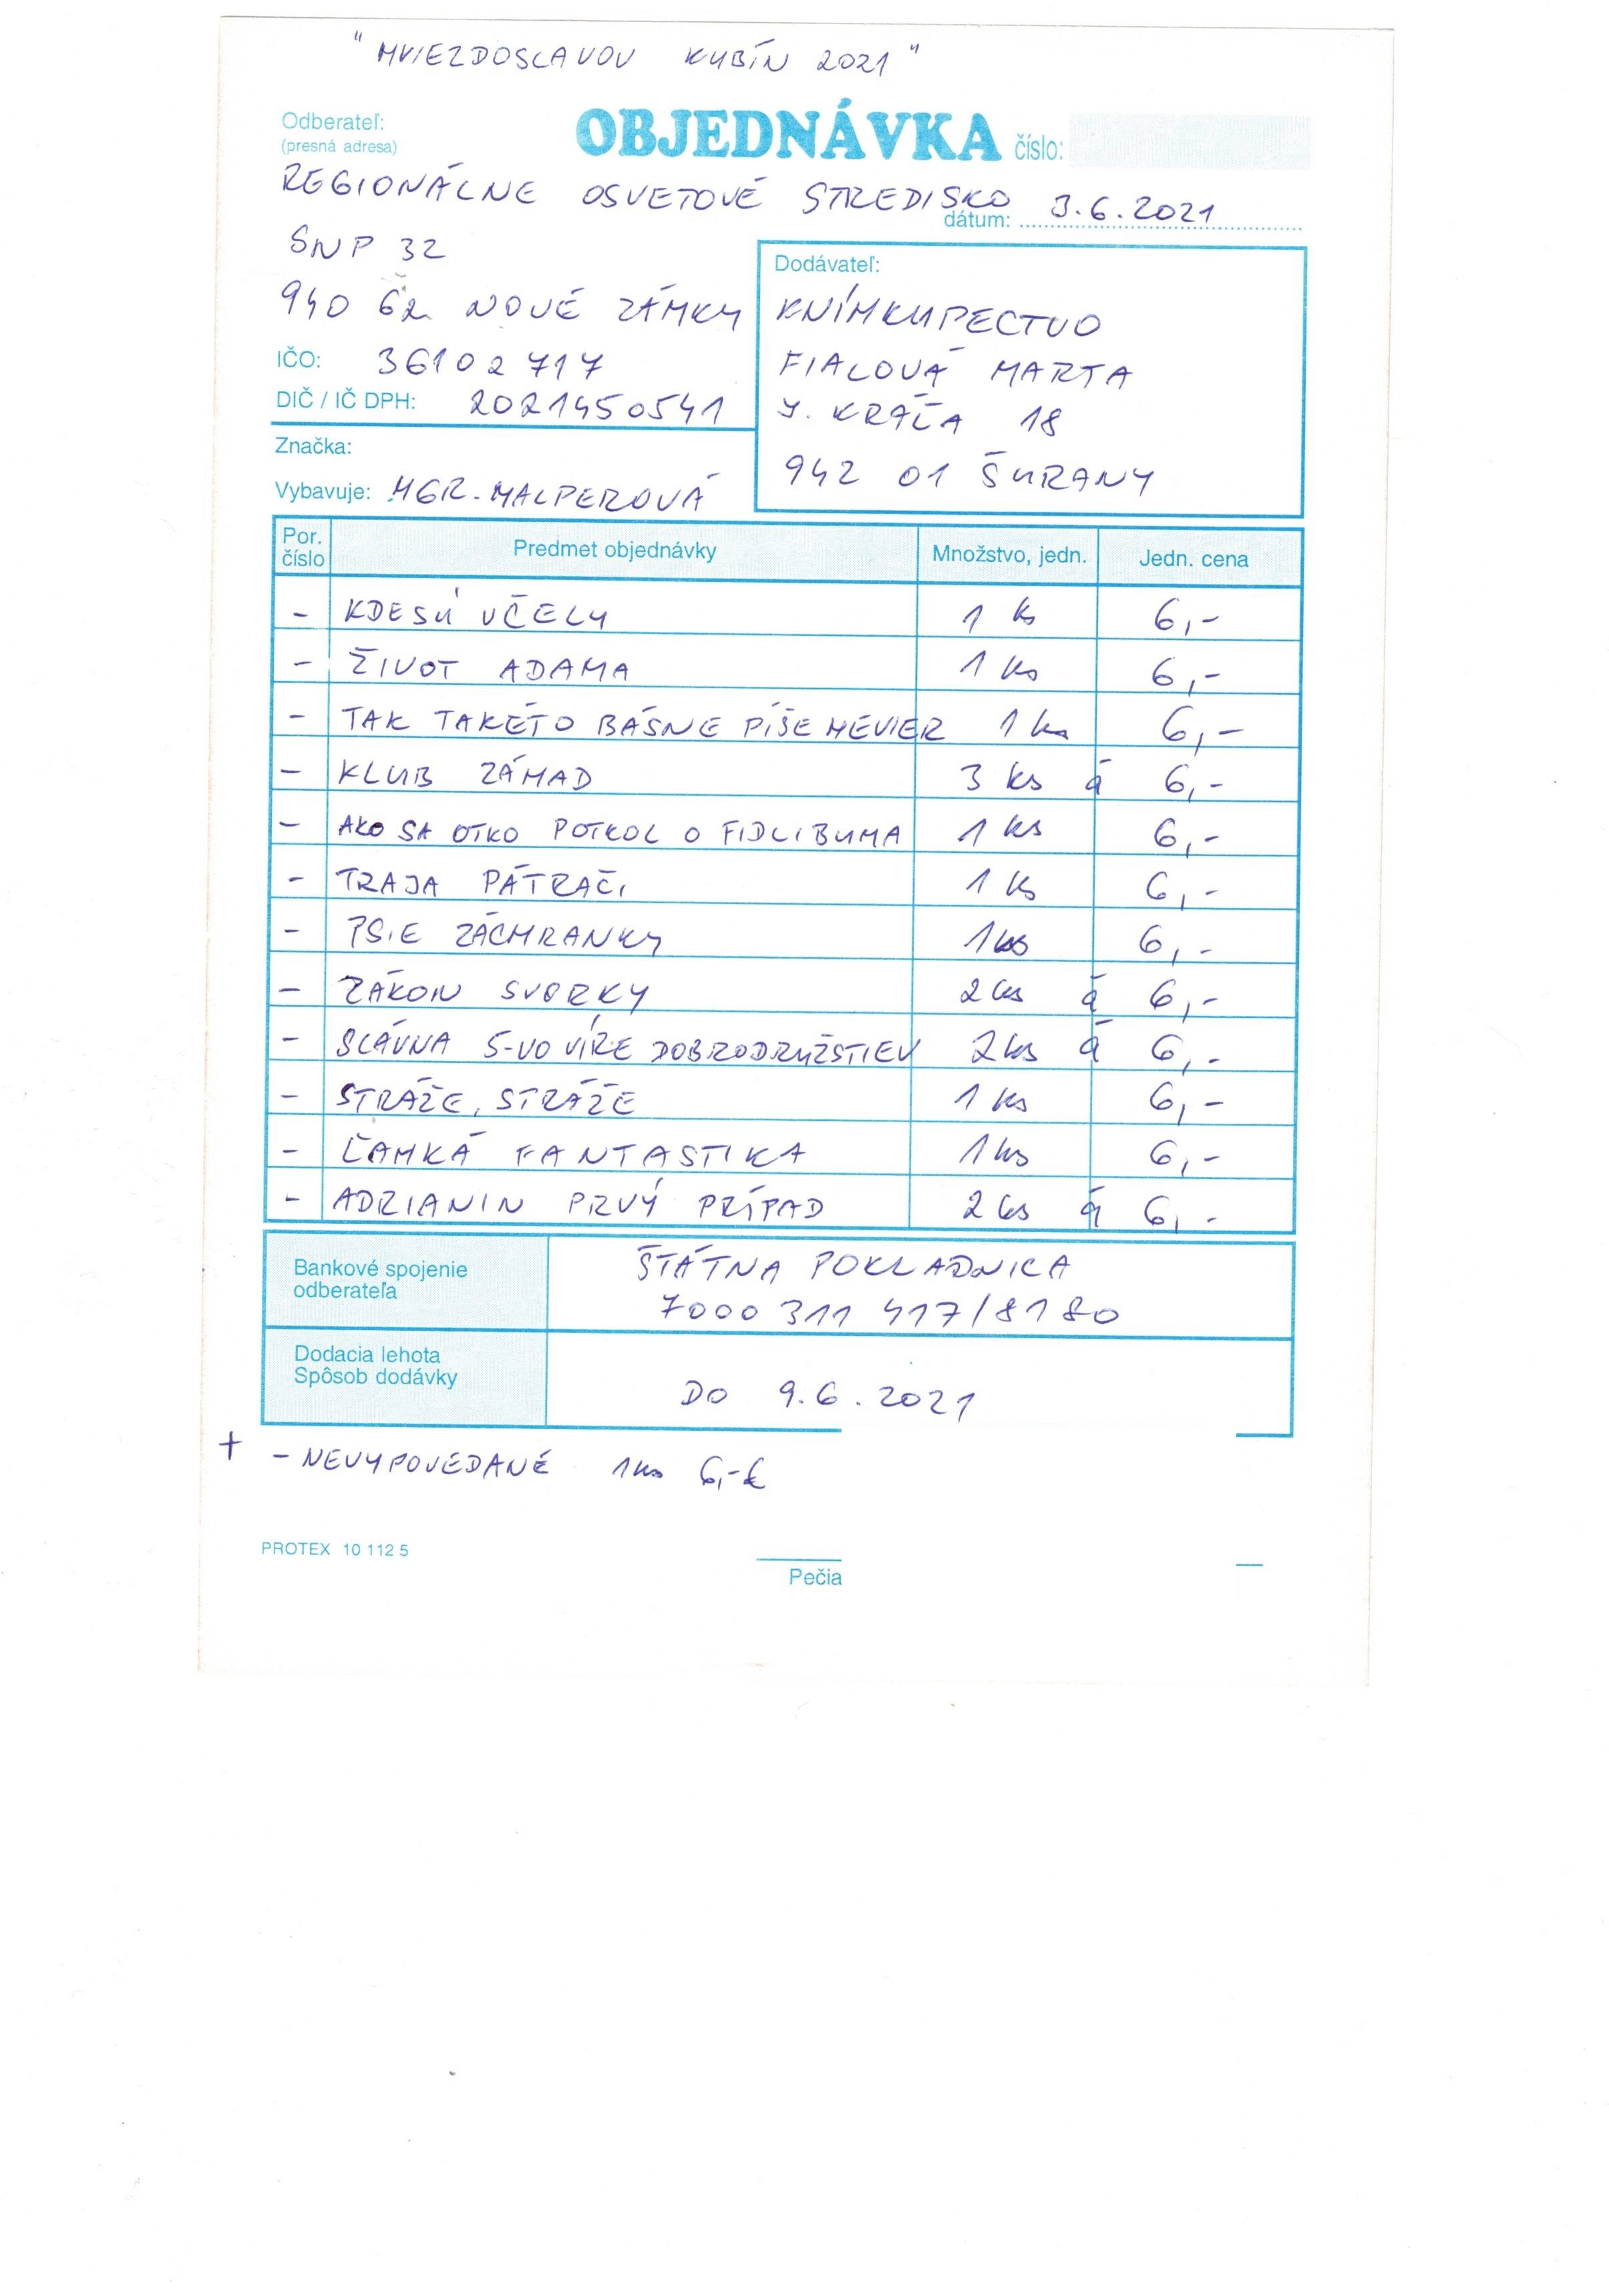 "HVIEZDOSLAVOV KUBÍN 2021"
Odberateľ:
(presná adresa)
OBJEDNÁVKA číslo:
REGIONÁLNE OSVETOVÉ STREDISKO
dátum: 3.6.2021
SNP 32
940 62 NOVÉ ZÁMKY
IČO: 36102717
DIČ / IČ DPH: 2021450541
Značka:
Vybavuje: MGR. HALPEROVÁ
Dodávateľ:
KNÍHKUPECTVO
FIALOVÁ MARTA
J. KRÁĽA 18
942 01 ŠURANY
Por. číslo Predmet objednávky Množstvo, jedn. Jedn. cena
- KDE SÚ VČELY 1 ks 6,-
- ŽIVOT ADAMA 1 ks 6,-
- TAK TAKÉTO BÁSNE PÍŠE HEVIER 1 ks 6,-
- KLUB ZÁHAD 3 ks á 6,-
- AKO SA OTKO POTKOL O FIDLIBUMA 1 ks 6,-
- TRAJA PÁTRAČI 1 ks 6,-
- PSIE ZÁCHRANKY 1 ks 6,-
- ZÁKON SVORKY 2 ks á 6,-
- SLÁVNA 5-VO VÍRE DOBRODRUŽSTIEV 2 ks á 6,-
- STRÁŽE, STRÁŽE 1 ks 6,-
- ĽAHKÁ FANTASTIKA 1 ks 6,-
- ADRIANIN PRVÝ PRÍPAD 2 ks á 6,-
Bankové spojenie
odberateľa
ŠTÁTNA POKLADNICA
7000 311 417/8180
Dodacia lehota
Spôsob dodávky
DO 9.6.2021
+ - NEVYPOVEDANÉ 1 ks 6,-€
PROTEX 10 112 5
Pečia